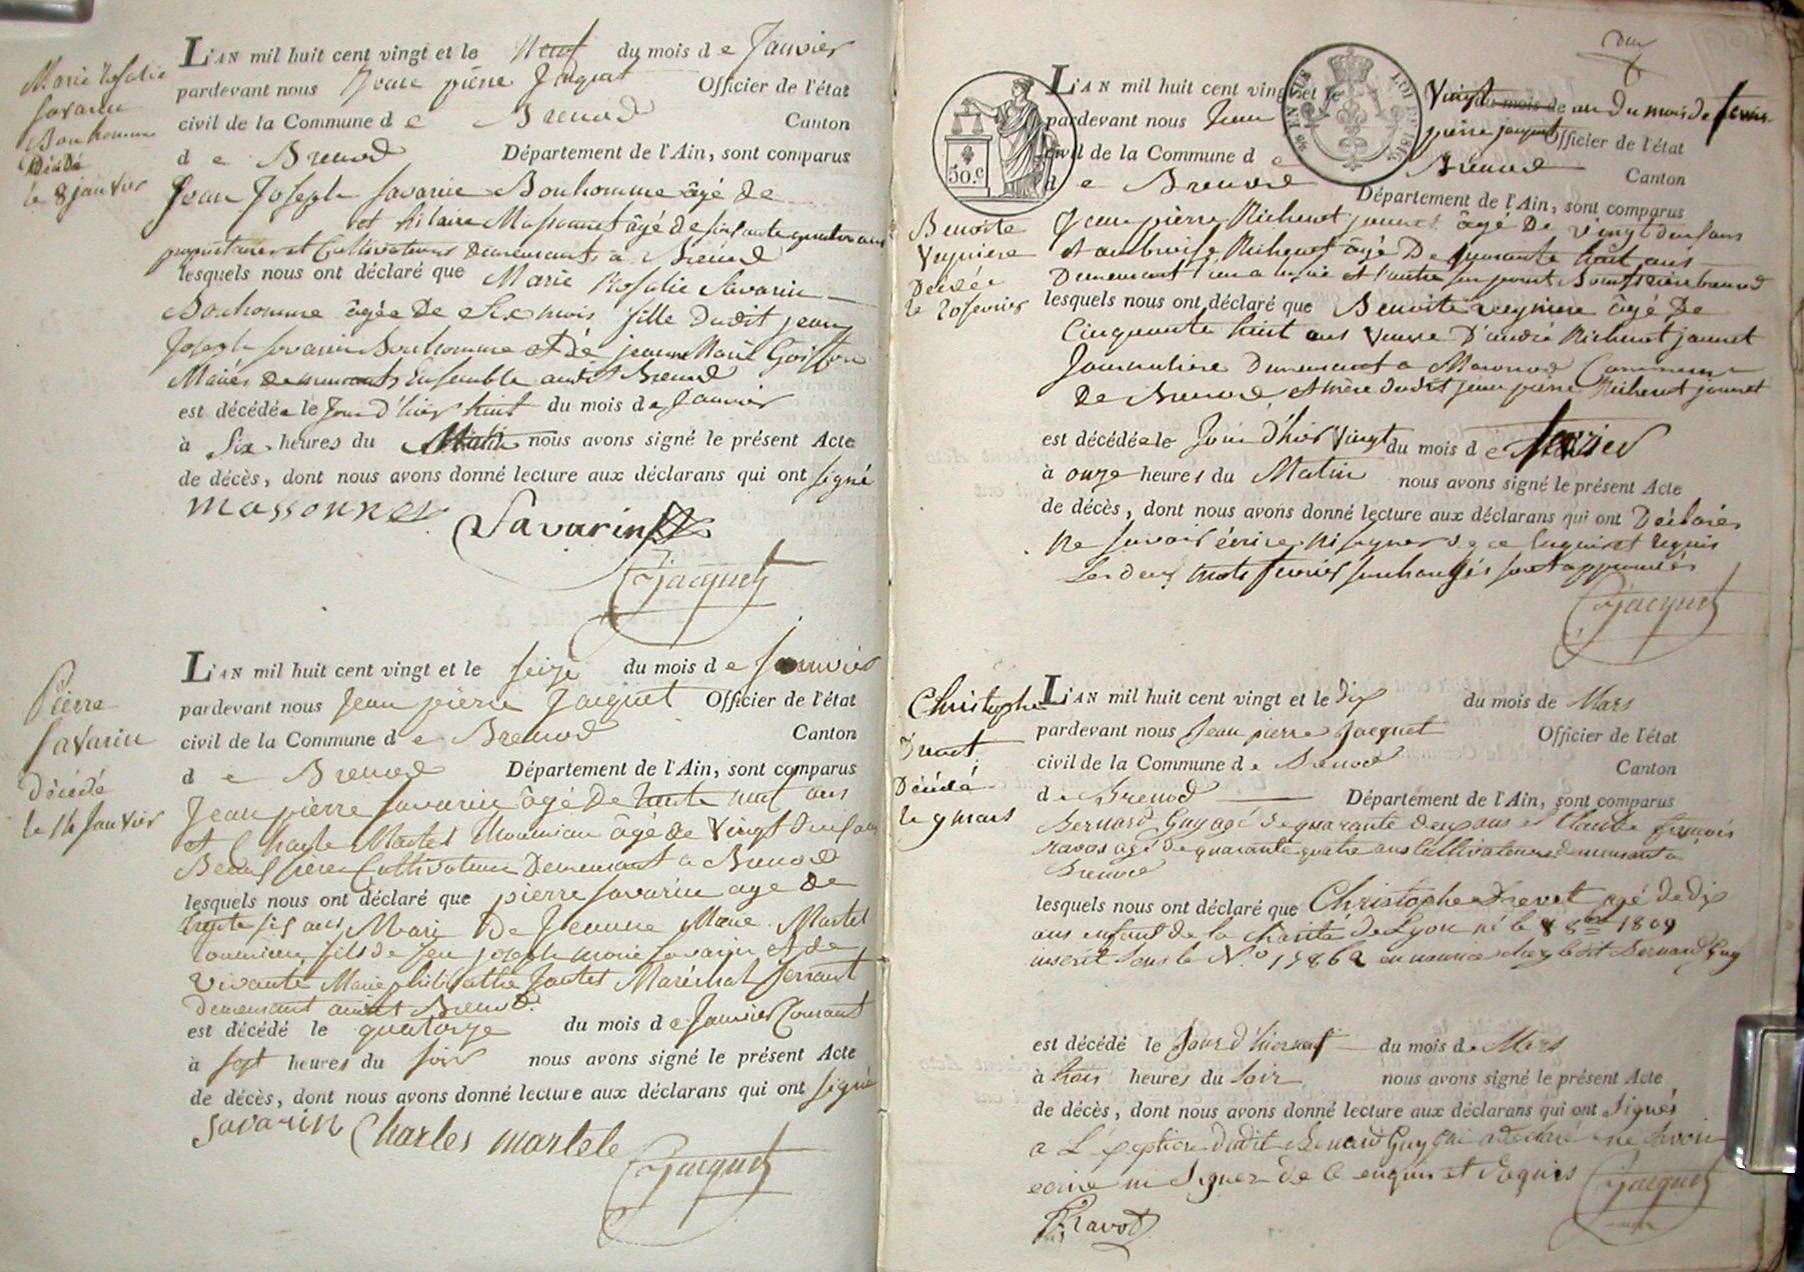 Marie Rosalie
Savarin
Bonhomme
Décédé
le 8 janvier
L'AN mil huit cent vingt et le Neuf du mois de Janvier
pardevant nous Jean pierre Jacquet Officier de l'état
civil de la Commune de Brenod Canton
de Brenod Département de l'Ain, sont comparus
Jean Joseph Savarin Bonhomme âgé de
et hilaire Massonnet âgé de soixante quatre ans
propriétaires et Cultivateurs demeurants à Brenod
lesquels nous ont déclaré que Marie Rosalie Savarin
Bonhomme âgée de Six mois fille dudit jean
Joseph Savarin Bonhomme et de jeanne Marie Goiffon
Mariés demeurants Ensemble audit Brenod
est décédée le Jour d'hier huit du mois de Janvier
à Six heures du Matin nous avons signé le présent Acte
de décès, dont nous avons donné lecture aux déclarans qui ont signé
massonnet Savarin
Jacquet
Pierre
Savarin
Décédé
le 14 Janvier
L'AN mil huit cent vingt et le seize du mois de Janvier
pardevant nous Jean pierre Jacquet Officier de l'état
civil de la Commune de Brenod Canton
de Brenod Département de l'Ain, sont comparus
Jean pierre Savarin âgé de trente ans
et Charle Martel Thoumian âgé de Vingt deux ans
Beau frère Cultivateurs Demeurant a Brenod
lesquels nous ont déclaré que pierre Savarin age de
trente six ans Mari De Jeanne Marie Martel
fils de feu joseph marie Savarin et de
vivante Marie Maréchal ferrant
demeurant audit Brenod
est décédé le quatorze du mois de Janvier Courant
à sept heures du soir nous avons signé le présent Acte
de décès, dont nous avons donné lecture aux déclarans qui ont signé
Savarin Charles martele
Jacquet
deux
50.C
L'AN mil huit cent vingt et le Vingt un du mois de fevrier
pardevant nous Jean pierre jacquet Officier de l'état
civil de la Commune de Brenod Canton
de Brenod Département de l'Ain, sont comparus
Benoite
Veyniere
Décédée
le 20 fevrier
Jean pierre Richerot jannet âgé De vingt deux ans
et ambroise Richerot âgé De quarante huit ans
Demeurant l'un a et l'autre
lesquels nous ont déclaré que Benoite veyniere âgé De
Cinquante huit ans Veuve D'andré Richerot jannet
Journaliere Demeurant a Macconod Commune
De Brenod et mère dudit jean pierre Richerot jannet
est décédée le Jour d'hier Vingt du mois de fevrier
à onze heures du Matin nous avons signé le présent Acte
de décès, dont nous avons donné lecture aux déclarans qui ont Déclarés
Ne savoir écrire Ni signer de ce Enquis et Requis
Les deux mots fevrier surchargés sont approuvés
Jacquet
Christophe
Drevet
Décédé
le 9 mars
L'AN mil huit cent vingt et le dix du mois de Mars
pardevant nous Jean pierre Jacquet Officier de l'état
civil de la Commune de Brenod Canton
de Brenod Département de l'Ain, sont comparus
Bernard Guy agé de quarante deux ans et Claude françois
ravos agé de quarante quatre ans Cultivateurs demeurant a
Brenod
lesquels nous ont déclaré que Christophe Drevet agé de dix
ans enfant de la Charité de Lyon né le 8 8bre 1809
inscrit sous le N.o 15862 en nourice chez ledit Bernard Guy
est décédé le Jour d'hier neuf du mois de Mars
à trois heures du soir nous avons signé le présent Acte
de décès, dont nous avons donné lecture aux déclarans qui ont Signés
a L'éxeption dudit Bernard Guy qui a déclaré ne savoir
ecrire ni Signer de Ce enquis et Requis Jacquet
Ravot